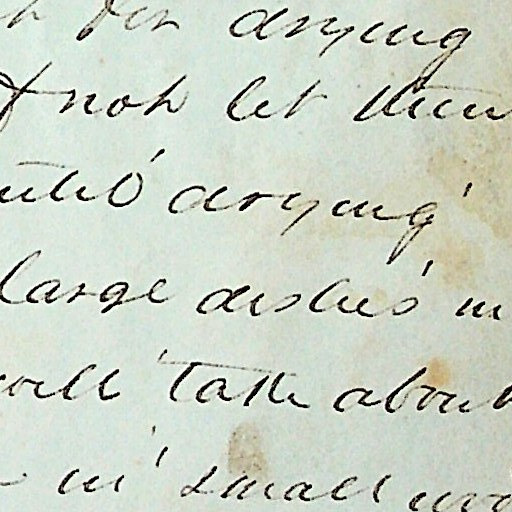 for drying
not let them
until drying
large dishes in
will take about
in small